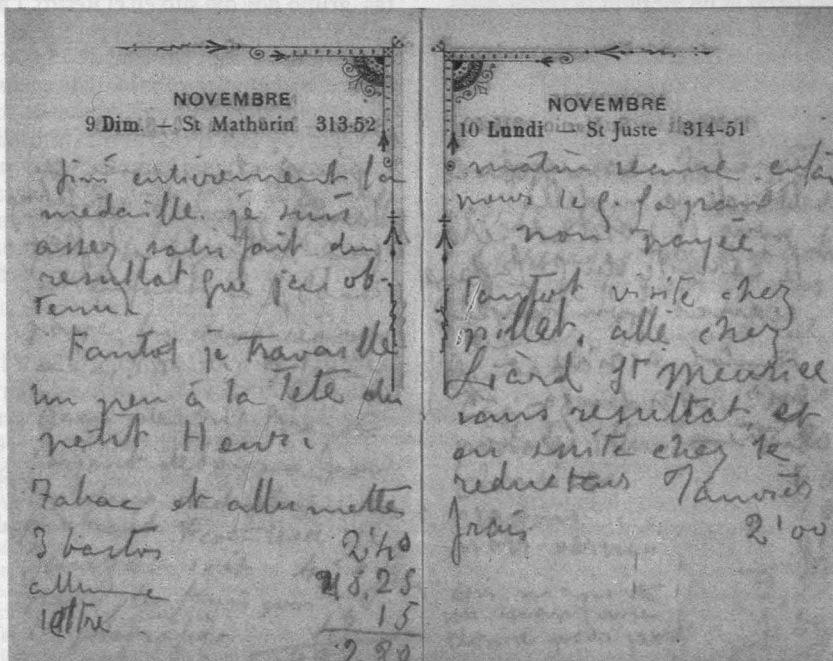 NOVEMBRE
9 Dim. — St Mathurin 313-52
fini entierement la
medaille. je suis
assez satisfait du
resultat que j'ai ob-
tenu.
Tantot je travaille
un peu à la Tete du
petit Henri
Tabac et allumettes
3 bastos 2'40
allume 25
lettre 15
2 80
NOVEMBRE
10 Lundi — St Juste 314-51
matin
nous
non payée
Tantot visite chez
pillet, allé chez
Liard St meurice
sans resultat et
en suite chez le
reducteur
frais 2'00